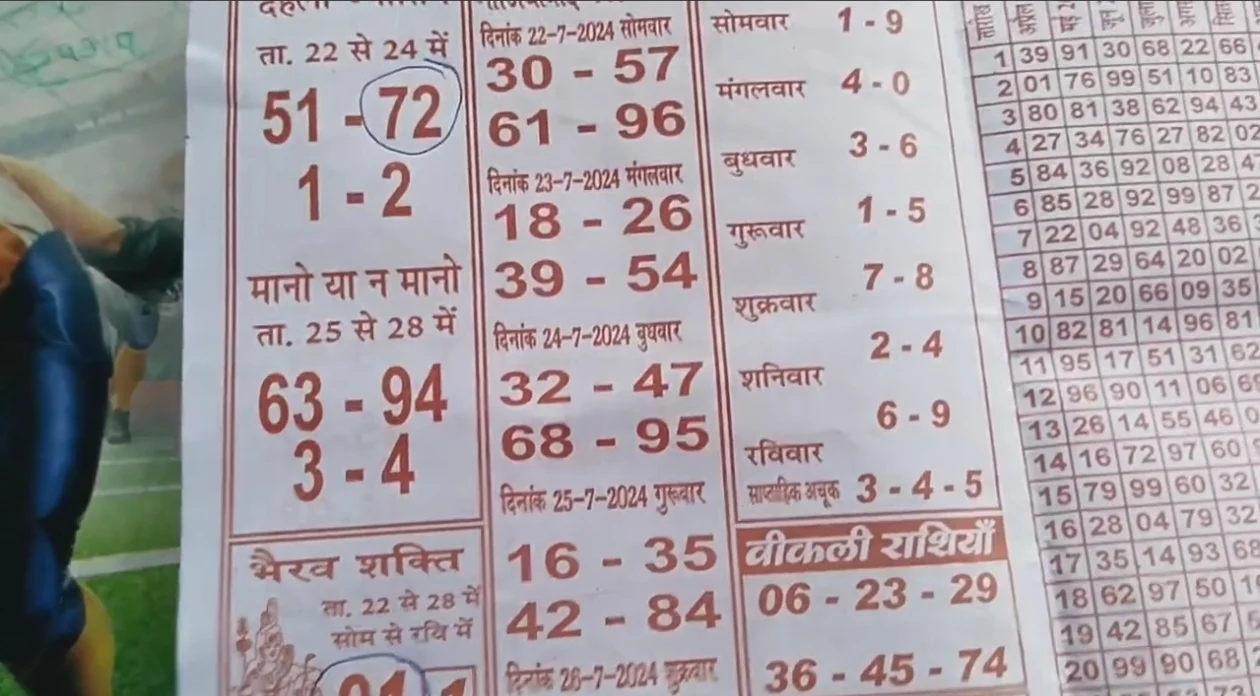 ता. 22 से 24 में
51 - 72
1 - 2
मानो या न मानो
ता. 25 से 28 में
63 - 94
3 - 4
भैरव शक्ति
ता. 22 से 28 में
सोम से रवि में
दिनांक 22-7-2024 सोमवार
30 - 57
61 - 96
दिनांक 23-7-2024 मंगलवार
18 - 26
39 - 54
दिनांक 24-7-2024 बुधवार
32 - 47
68 - 95
दिनांक 25-7-2024 गुरूवार
16 - 35
42 - 84
दिनांक 26-7-2024 शुक्रवार
सोमवार 1 - 9
मंगलवार 4 - 0
बुधवार 3 - 6
गुरूवार 1 - 5
शुक्रवार 7 - 8
शनिवार 2 - 4
रविवार 6 - 9
साप्ताहिक अचूक 3 - 4 - 5
वीकली राशियाँ
06 - 23 - 29
36 - 45 - 74
1 39 91 30 68 22 66
2 01 76 99 51 10 83
3 80 81 38 62 94 43
4 27 34 76 27 82 02
5 84 36 92 08 28
6 85 28 92 99 87
7 22 04 92 48 36
8 87 29 64 20 02
9 15 20 66 09 35
10 82 81 14 96 81
11 95 17 51 31 62
12 96 90 11 06
13 26 14 55 46
14 16 72 97 60
15 79 99 60 32
16 28 04 79 32
17 35 14 93 68
18 62 97 50
19 42 85 67
20 99 90 68